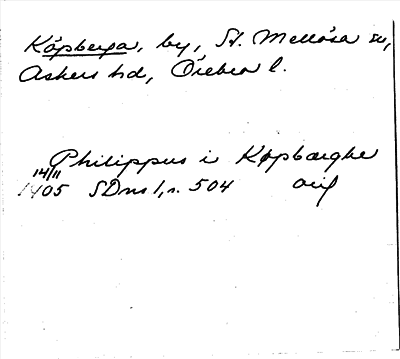 Köpberga, by, St. Mellösa sn,
Askers hd, Örebro l.
Philippus i Køpbærghe
14/11
1405 SDns 1, s. 504 orig